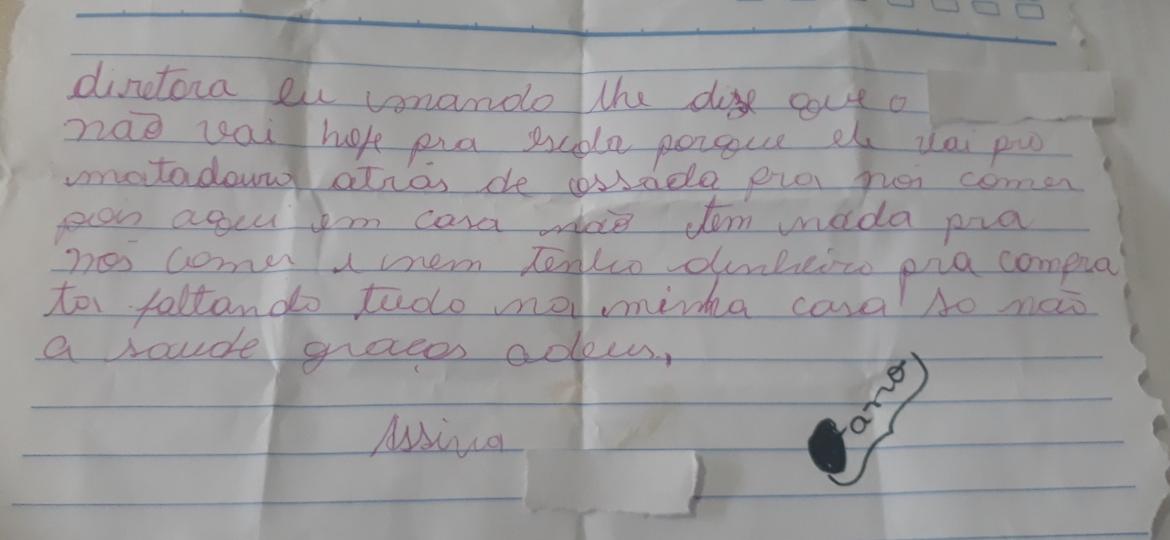 diretora eu mando lhe dize que o
não vai hoje pra escola porque ele vai pro
matadouro atrás de ossada pra nós comer
pois aqui em casa não tem nada pra
nós comer e nem tenho dinheiro pra compra
ta faltando tudo na minha casa só não
a saude graças adeus,
Assina
ano